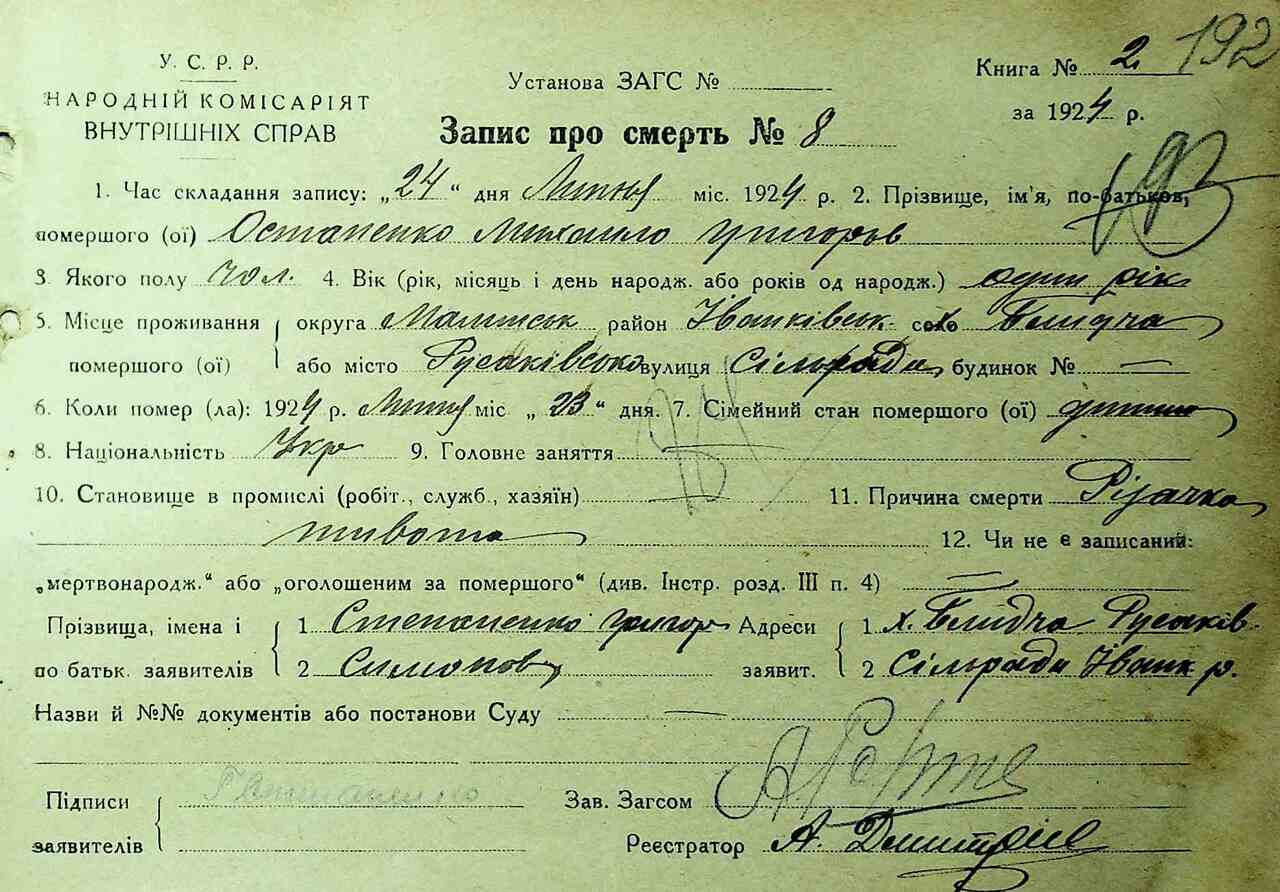 У. С. Р. Р.
НАРОДНІЙ КОМІСАРІЯТ
ВНУТРІШНІХ СПРАВ
Установа ЗАГС №
Книга № 2. 192
за 1924 р.
Запис про смерть № 8
1. Час складання запису: „24" дня Липня міс. 1924 р. 2. Прізвище, ім'я, по-батькові,
помершого (ої) Остапенко Михайло Григоров
3. Якого полу чол. 4. Вік (рік, місяць і день народж. або років од народж.) один рік
5. Місце проживання округа Малинськ район Іванківськ. село
помершого (ої) або місто Русаківська вулиця Сільради будинок № —
6. Коли помер (ла): 1924 р. Липня міс „23" дня. 7. Сімейний стан помершого (ої) дитина
8. Національність Укр 9. Головне заняття —
10. Становище в промислі (робіт., служб., хазяїн) — 11. Причина смерти Різачка
живота 12. Чи не є записаний:
„мертвонародж." або „оголошеним за помершого" (див. Інстр. розд. III п. 4) —
Прізвища, імена і 1 Степаненко Григор Адреси 1 х. Русаків.
по батьк. заявителів 2 Симонов заявит. 2 Сільради Іванк р.
Назви й №№ документів або постанови Суду —
Підписи Зав. Загсом
заявителів Реєстратор А.